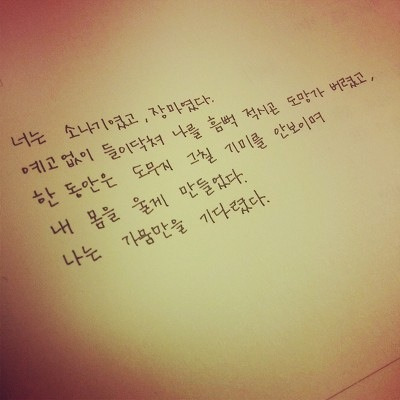 너는 소나기였고, 장마였다.
예고없이 들이닥쳐 나를 흠뻑 적시곤 도망가 버렸고,
한 동안은 도무지 그칠 기미를 안보이며
내 몸을 울게 만들었다.
나는 가뭄만을 기다렸다.